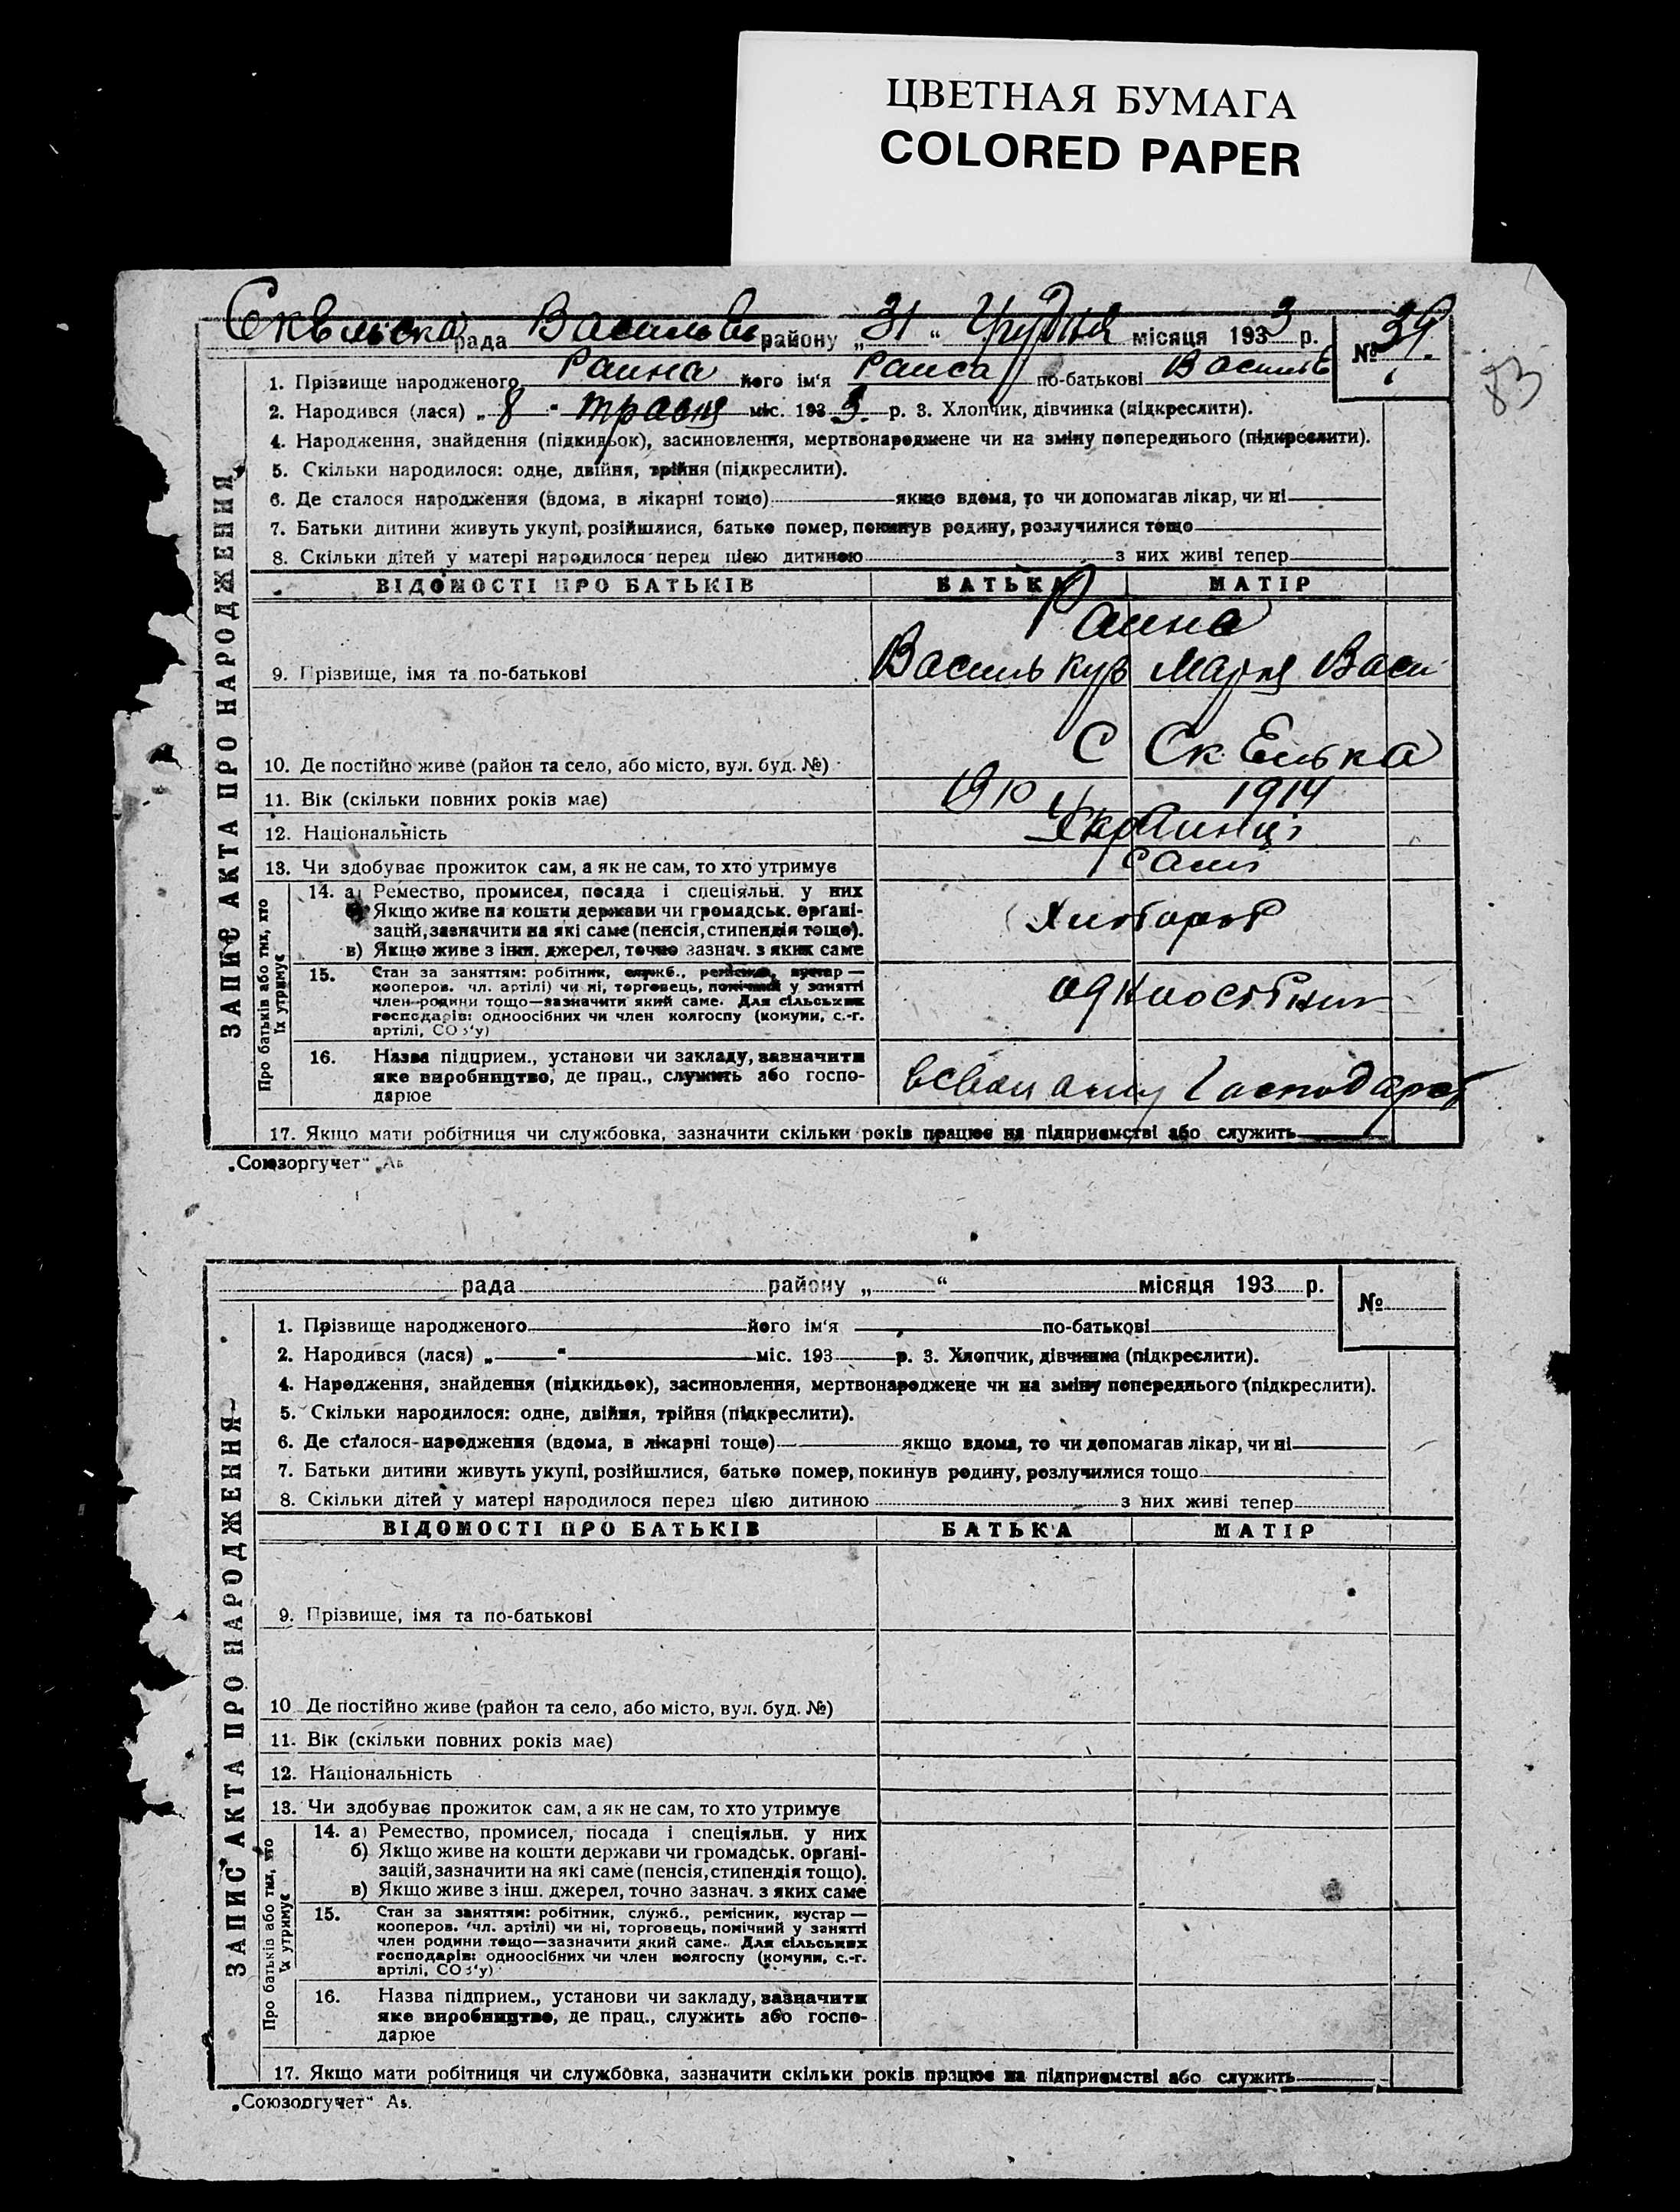 ЦВЕТНАЯ БУМАГА
COLORED PAPER
рада Васильев району „31“ Грудня місяця 1933 р. № 34.
83
1. Прізвище народженого Раина його ім‘я Раиса по-батькові Василье
2. Народився (лася) „8“ травня міс. 1933 р. 3. Хлопчик, дівчинка (підкреслити).
4. Народження, знайдення (підкидьок), засиновлення, мертвонароджене чи на зміну попереднього (підкреслити).
5. Скільки народилося: одне, двійня, трійня (підкреслити).
6. Де сталося народження (вдома, в лікарні тощо) якщо вдома, то чи допомагав лікар, чи ні
7. Батьки дитини живуть укупі, розійшлися, батько помер, покинув родину, розлучилися тощо
8. Скільки дітей у матері народилося перед цією дитиною з них живі тепер
ЗАПИС АКТА ПРО НАРОДЖЕННЯ
ВІДОМОСТІ ПРО БАТЬКІВ БАТЬКА МАТІР
Раина
9. Прізвище, імя та по-батькові Василь Мария Васи
10. Де постійно живе (район та село, або місто, вул. буд. №) С Скелька
11. Вік (скільки повних років має) 1910 1914
12. Національність Украинці
13. Чи здобуває прожиток сам, а як не сам, то хто утримує сами
Про батьків або тих, хто їх утримує
14. а) Ремество, промисел, посада і спеціяльн. у них
б) Якщо живе на кошти держави чи громадськ. органі-
зацій, зазначити на які саме (пенсія, стипендія тощо). Хлібороб
в) Якщо живе з інш. джерел, точно зазнач. з яких саме
15. Стан за заняттям: робітник, служб., ремісник, кустар —
кооперов. чл. артілі) чи ні, торговець, помічний у занятті
член родини тощо—зазначити який саме. Для сільських
господарів: одноосібних чи член колгоспу (комуни, с.-г.
артілі, СОЗ‘у)
16. Назва підприєм., установи чи закладу, зазначити
яке виробництво, де прац., служить або госпо-
дарюе
17. Якщо мати робітниця чи службовка, зазначити скільки років працює на підприємстві або служить
„Союзоргучет“
рада району „ “ місяця 193 р. №
1. Прізвище народженого його ім‘я по-батькові
2. Народився (лася) „ “ міс. 193 р. 3. Хлопчик, дівчинка (підкреслити).
4. Народження, знайдення (підкидьок), засиновлення, мертвонароджене чи на зміну попереднього (підкреслити).
5. Скільки народилося: одне, двійня, трійня (підкреслити).
6. Де сталося народження (вдома, в лікарні тощо) якщо вдома, то чи допомагав лікар, чи ні
7. Батьки дитини живуть укупі, розійшлися, батько помер, покинув родину, розлучилися тощо
8. Скільки дітей у матері народилося перед цією дитиною з них живі тепер
ЗАПИС АКТА ПРО НАРОДЖЕННЯ
ВІДОМОСТІ ПРО БАТЬКІВ БАТЬКА МАТІР
9. Прізвище, імя та по-батькові
10 Де постійно живе (район та село, або місто, вул. буд. №)
11. Вік (скільки повних років має)
12. Національність
13. Чи здобуває прожиток сам, а як не сам, то хто утримує
Про батьків або тих, хто їх утримує
14. а) Ремество, промисел, посада і спеціяльн. у них
б) Якщо живе на кошти держави чи громадськ. органі-
зацій, зазначити на які саме (пенсія, стипендія тощо).
в) Якщо живе з інш. джерел, точно зазнач. з яких саме
15. Стан за заняттям: робітник, служб., ремісник, кустар —
кооперов. чл. артілі) чи ні, торговець, помічний у занятті
член родини тощо—зазначити який саме. Для сільських
господарів: одноосібних чи член колгоспу (комуни, с.-г.
артілі, СОЗ‘у)
16. Назва підприєм., установи чи закладу, зазначити
яке виробництво, де прац., служить або госпо-
дарюе
17. Якщо мати робітниця чи службовка, зазначити скільки років працює на підприємстві або служить
„Союзоргучет“